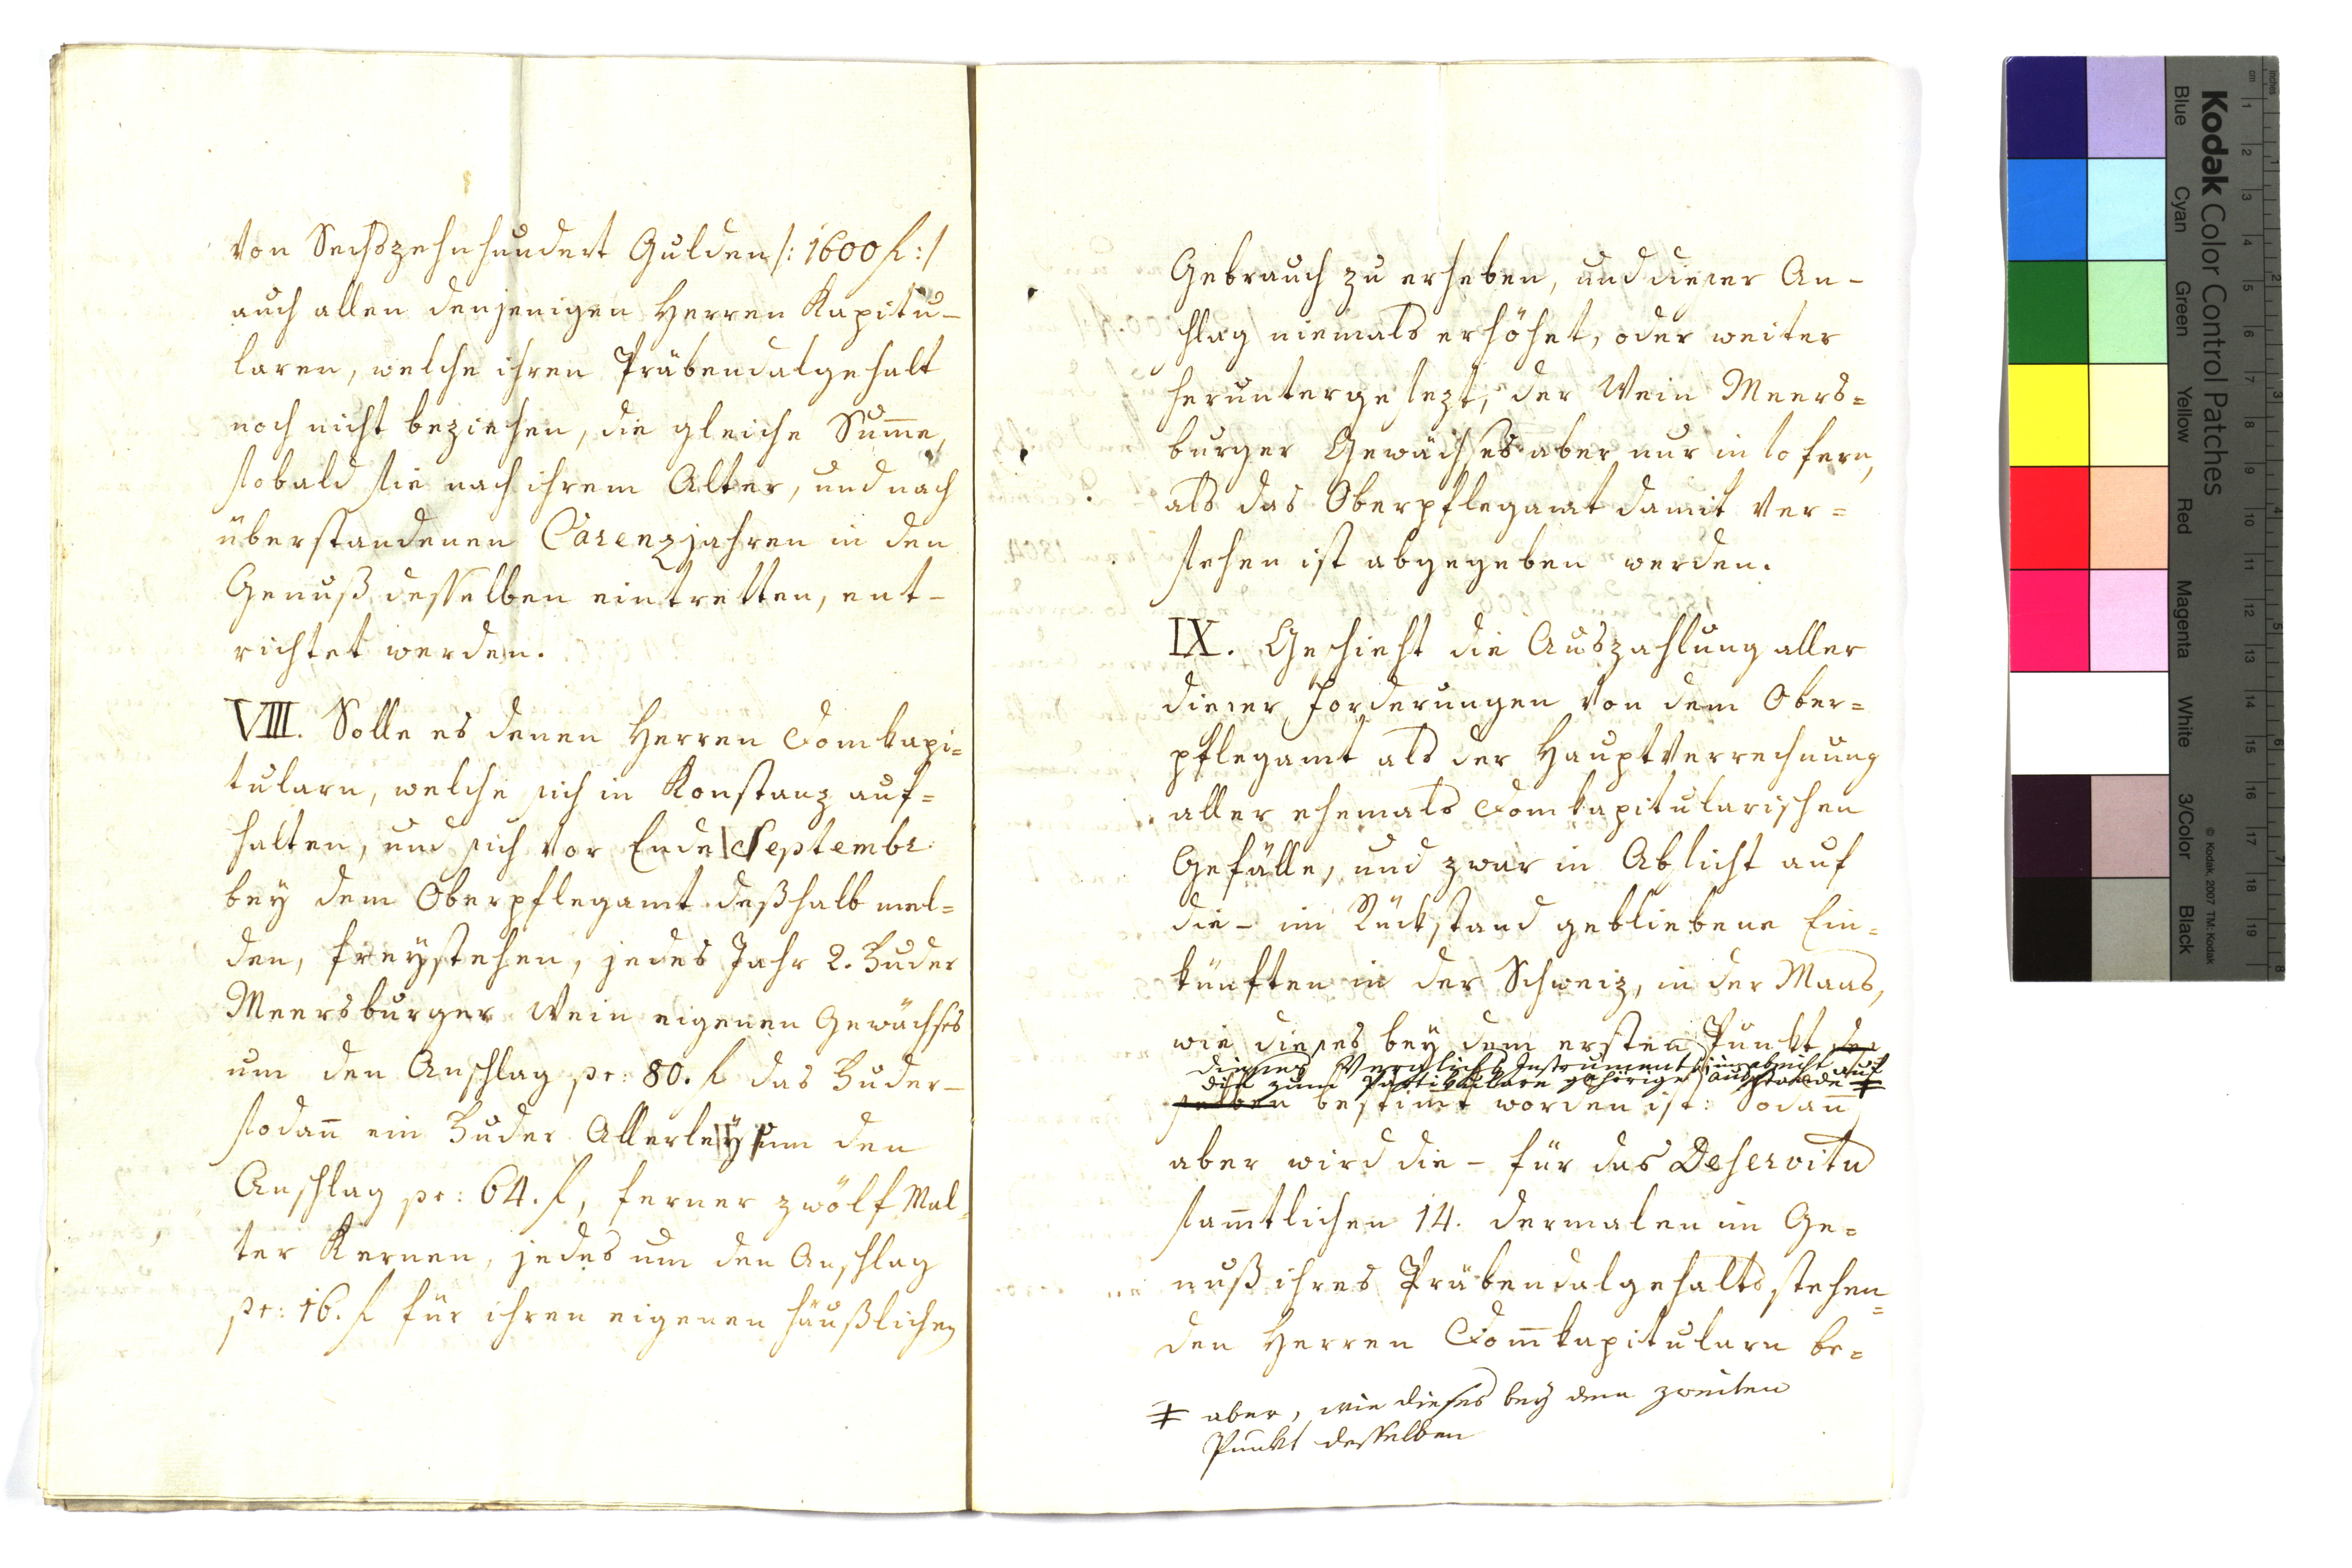 von Sechszehnhundert Gulden /: 1600 f :/
auch allen denjenigen Herren Kapitu-
laren, welche ihren Präbendalgehalt
noch nicht beziehen, die gleiche Sum̄e,
sobald sie nach ihrem Alter, und nach
überstandenen Carenzjahren in den
Genuß desselben eintretten, ent-
richtet werden.
VIII. Solle es denen Herren Domkapi=
tularn, welche sich in Konstanz auf=
halten, und sich vor Ende Septembr.
bey dem Oberpflegamt deßhalb mel=
den, freystehen, jedes Jahr 2. Fuder
Meersburger Wein eigenen Gewächses
um den Anschlag pr: 80. f das Fuder-
sodan̄ ein Fuder Allerley um den
Anschlag pr: 64. f, ferner zwölf Mal=
ter Kernen, jedes um den Anschlag
pr: 16. f für ihren eigenen häußlichen
Gebrauch zu erheben, und dieser An-
schlag niemals erhöhet, oder weiter
heruntergesezt, der Wein Meers=
burger Gewächses aber nur in so fern,
als das Oberpflegamt damit ver=
sehen ist abgegeben werden.
IX. Geschieht die Auszahlung aller
dieser Forderungen von dem Ober=
pflegamt als der Hauptverrechnung
aller ehemals Domkapitularischen
Gefälle, und zwar in Absicht auf
die - im Rückstand gebliebene Ein=
künften in der Schweiz, in der Maas,
wie dieses bey dem ersten Punkt des
dieses Vergleichs Instruments, in absicht auf
die zum Particulare gehörige Ausstände ‡
selben bestim̄t worden ist: Sodan̄
aber wird die - für das Deservitu
sam̄tlichen 14. dermalen im Ge=
nuß ihres Präbendalgehalts stehen=
den Herren Dom̄kapitularn be=
‡ aber, wie dieses bey dem zweiten
Punkt desselben
Kodak Color Control Patches
Blue
Cyan
Green
Yellow
Red
Magenta
White
3/Color
Black
© Kodak, 2007 TM: Kodak
inches
cm
1 2 3 4 5 6 7 8 9 10 11 12 13 14 15 16 17 18 19
1 2 3 4 5 6 7 8